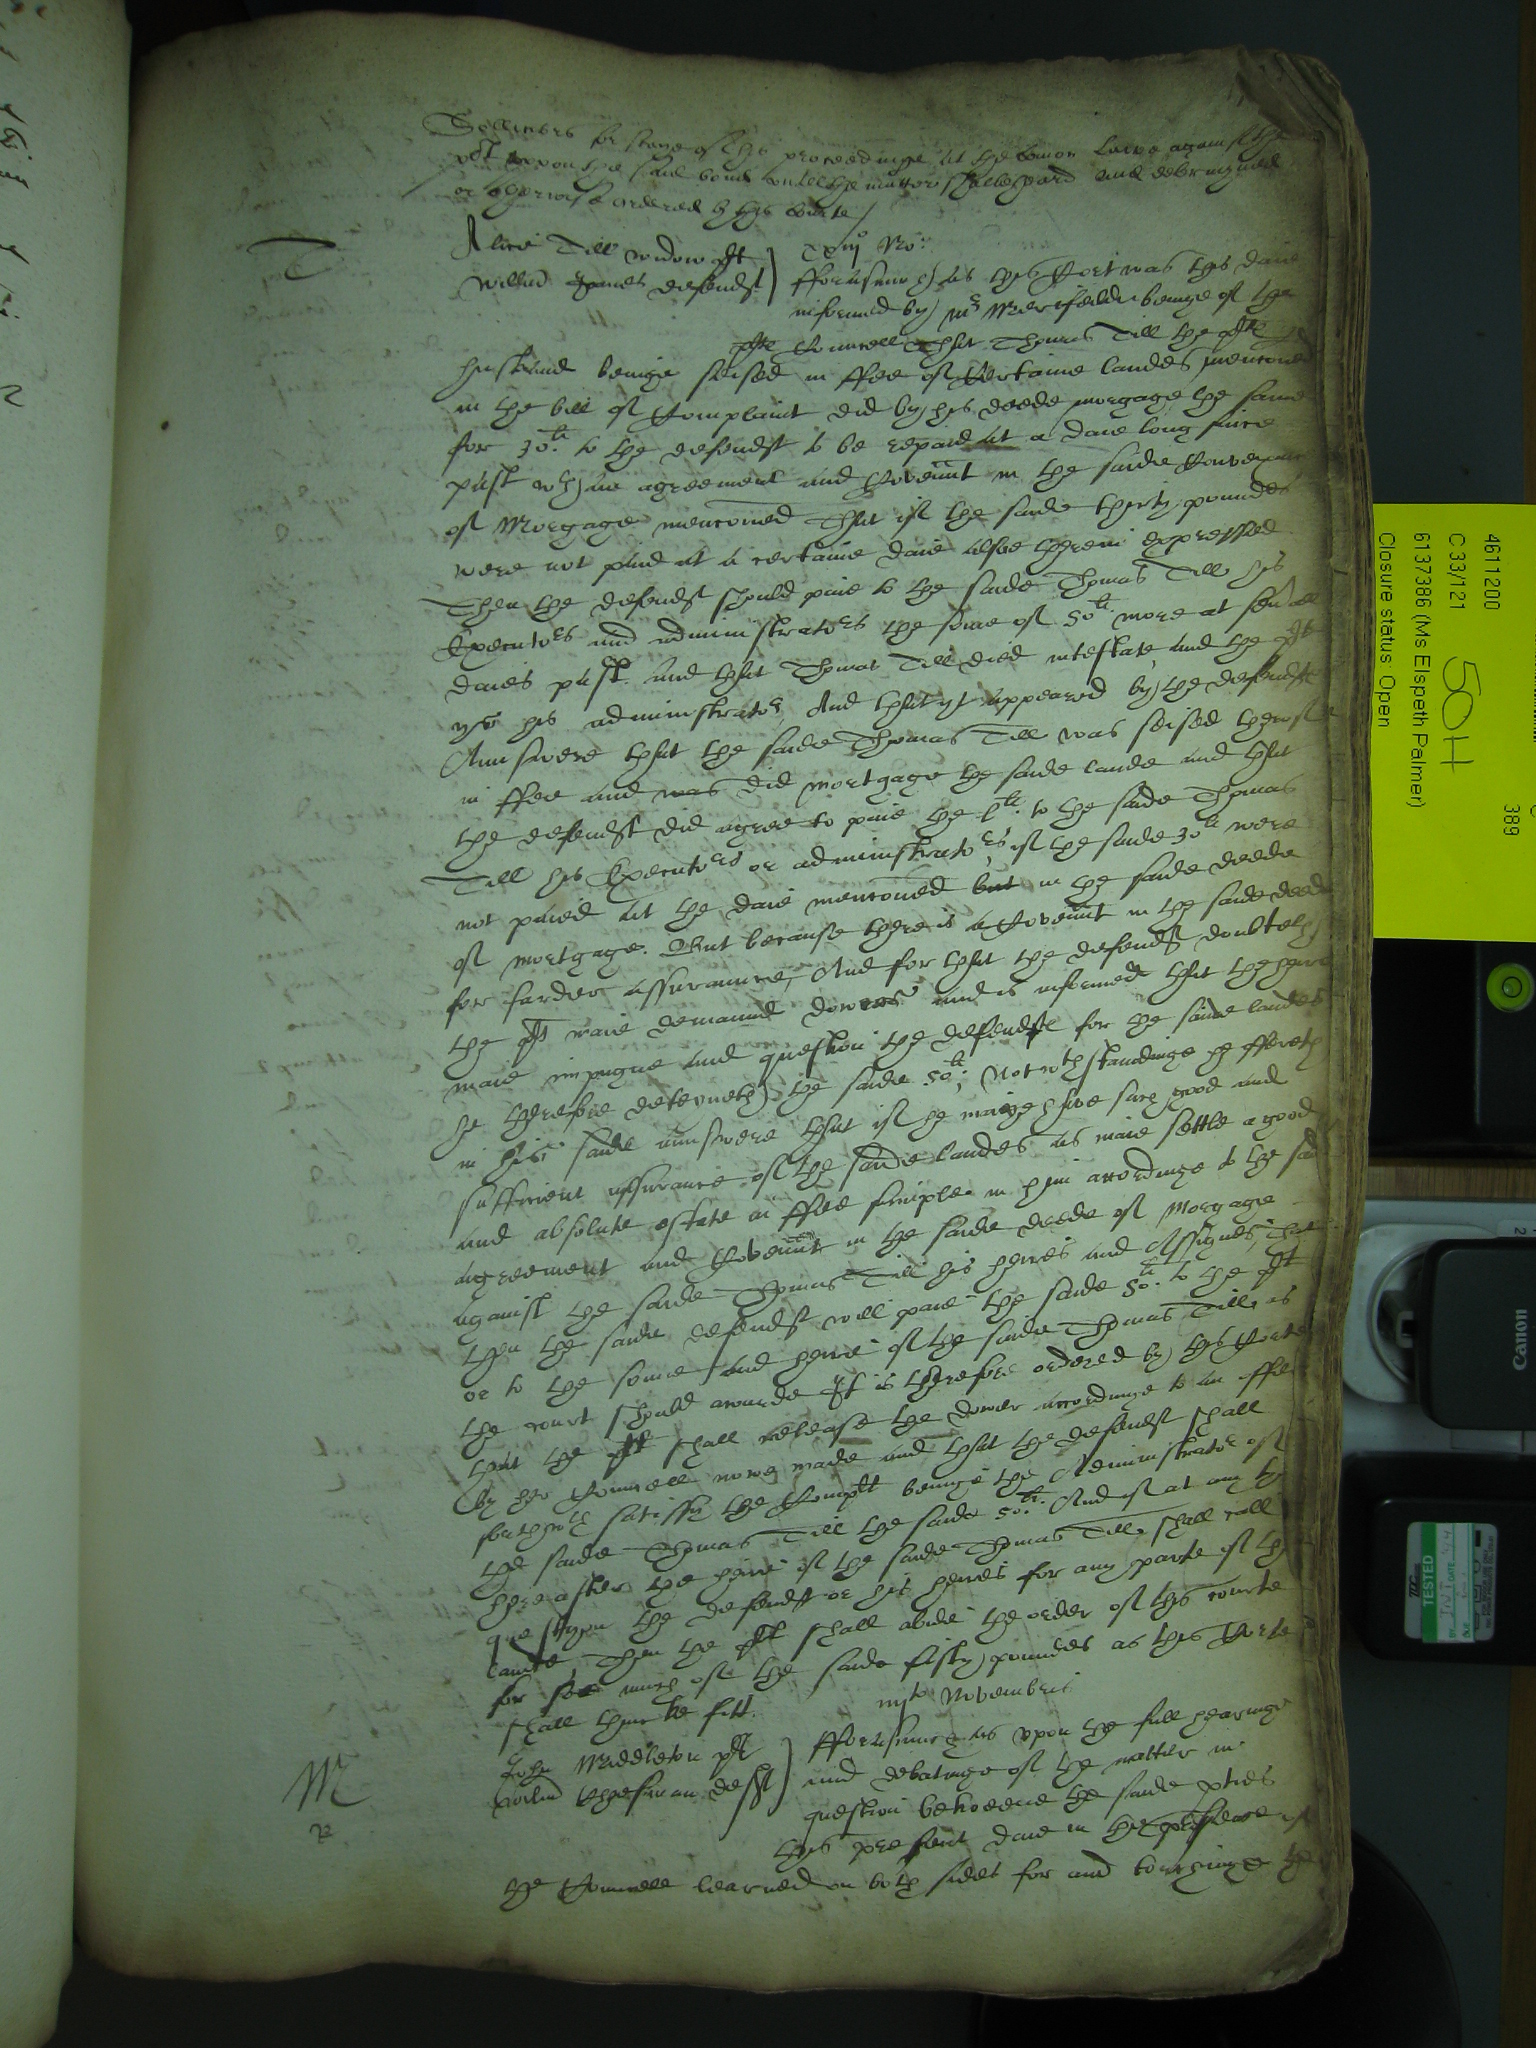 Sollicitors for staye of his proceedinge at the comon Lawe against the
plt upon the said bond untill the matter shalbe heard and determyned
or otherwise ordered by this courte /
T
Alice Till widow plt
Willm defendt
xxiij No:
fforasmuch as this Cort was this daie
informed by mr Merefeilde beinge of the
plte Councell That Thomas Till the plte
husband beinge seised in ffee of Certaine landes mencioned
in the bill of Complaint did by his deede morgage the same
for 30li. to the defendt to be repaid at a daie long since
past wth an agreement and Coven᷉nt in the saide Conveyance
of Morgage mencioned That if the saide thirty poundes
were not paid at a certaine daie alsoe therein expressed
Then the defendt should paie to the saide Thomas Till his
Executors and administrators the some of 50li. more at seu'all
daies past. And that Thomas Till died intestate and the plt
ys his administrator, And that yt appeared by the defendts
Aunswere that the saide Thomas Till was seised therof
in ffee and was did mortgage the saide lande and that
the defendt did agree to paie the Lli. to the saide Thomas
Till his Executors or administrators if the saide 30li were
not paied at the daie mencioned but in the saide deede
of mortgage. But because there is a Coven᷉nt in the saide deede
for farder assurance, And for that the defendt doubteth
the plt maie demaund dower and is informed that the heire
maie impugne and question the defendt for the saide landes
he therefore deteyneth the saide 50li; Notwthstandinge he offereth
in his saide aunswere that if he maie have such good and
sufficient assurance of the saide landes as maie settle a good
and absolute estate in ffee simple in him accordinge to the said
agreement and Coven᷉nt in the saide deede of Morgage
against the saide Thomas Till his heires and Assignes, That
then the saide defendt will paie the saide 50li. to the plt
or to the sonne and heire of the saide Thomas Till, as
the court should awarde It is therefore ordered by this Corte
that the plt shall release the dower accordinge to an offer
by her Councell nowe made and that the defendt shall
forthwth satisfy the Complt beinge the Administrator of
the saide Thomas Till the saide 50li. And if at any tyme
hereafter the heire of the saide Thomas Till, shall call
question the defendt or his heires for any parte of the
lande, Then the plt shall abide the order of this courte
for soe much of the saide fifty poundes as this Corte
shall thincke fitt.
Novembris
M
R
John Middleton plt
Willm Chesman deft
fforasmuch as upon the full hearinge
and debatinge of the matter in
question betweene the saide pties
this present daie in the presence of
the Councell learned on both sides for and touchinge the
4611200
C 33/21
6137386 (Ms Elspeth Palmer)
Closure status: Open
50H
389
Canon
TESTED